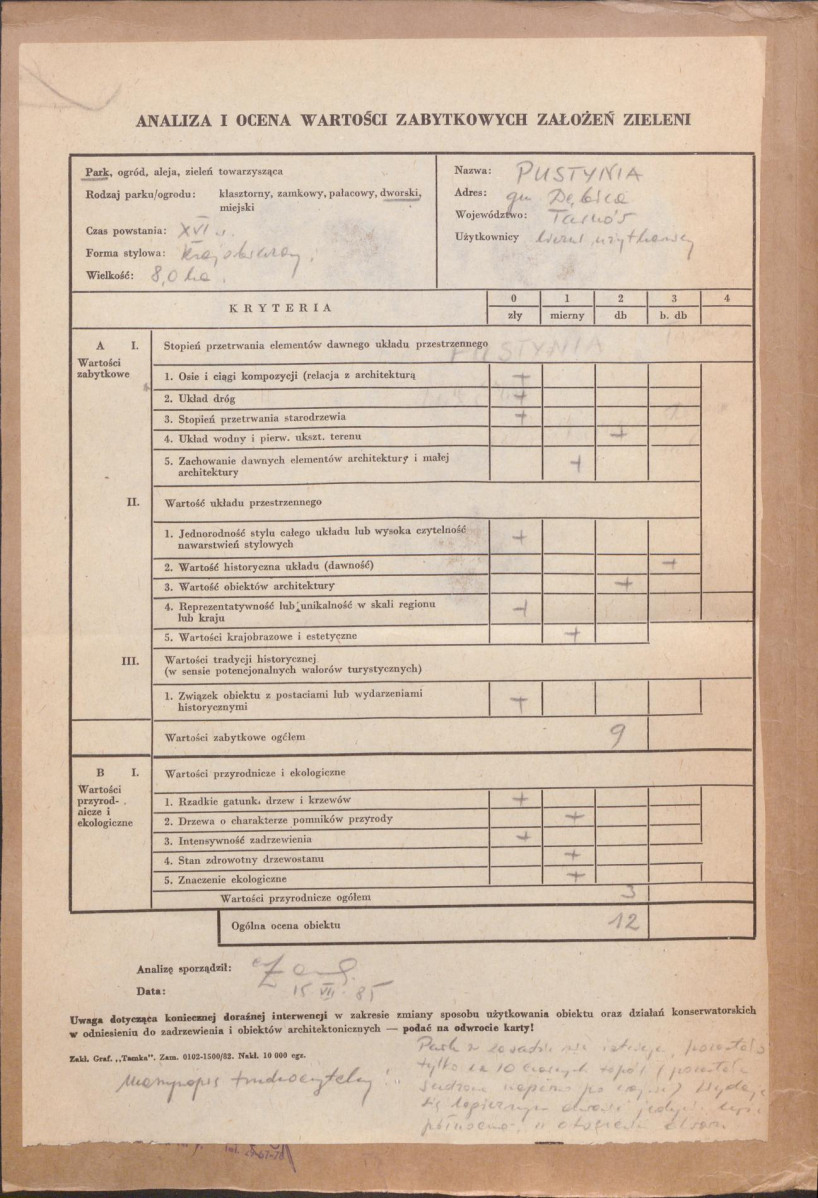 ANALIZA I OCENA WARTOŚCI ZABYTKOWYCH ZAŁOŻEŃ ZIELENI
Park, ogród, aleja, zieleń towarzysząca
Rodzaj parku/ogrodu: klasztorny, zamkowy, pałacowy, dworski,
miejski
Czas powstania: XVI w.
Forma stylowa: Krajobrazowy
Wielkość: 8,0 ha.
Nazwa: PUSTYNIA
Adres: gm Dębica
Województwo: Tarnów
Użytkownicy liczni użytkownicy
KRYTERIA
0 1 2 3 4
zły mierny db b. db
A I. Stopień przetrwania elementów dawnego układu przestrzennego
Wartości
zabytkowe
PUSTYNIA
1. Osie i ciągi kompozycji (relacja z architekturą +
2. Układ dróg +
3. Stopień przetrwania starodrzewia +
4. Układ wodny i pierw. ukszt. terenu +
5. Zachowanie dawnych elementów architektury i małej
architektury +
II. Wartość układu przestrzennego
1. Jednorodność stylu całego układu lub wysoka czytelność
nawarstwień stylowych +
2. Wartość historyczna układu (dawność) +
3. Wartość obiektów architektury +
4. Reprezentatywność lub unikalność w skali regionu
lub kraju +
5. Wartości krajobrazowe i estetyczne +
III. Wartości tradycji historycznej
(w sensie potencjonalnych walorów turystycznych)
1. Związek obiektu z postaciami lub wydarzeniami
historycznymi +
Wartości zabytkowe ogółem 9
B I. Wartości przyrodnicze i ekologiczne
Wartości
przyrod-
nicze i
ekologiczne
1. Rzadkie gatunk. drzew i krzewów +
2. Drzewa o charakterze pomników przyrody +
3. Intensywność zadrzewienia +
4. Stan zdrowotny drzewostanu +
5. Znaczenie ekologiczne +
Wartości przyrodnicze ogółem 3
Ogólna ocena obiektu 12
Analizę sporządził:
Data: 15 VII. 85
Uwaga dotycząca koniecznej doraźnej interwencji w zakresie zmiany sposobu użytkowania obiektu oraz działań konserwatorskich
w odniesieniu do zadrzewienia i obiektów architektonicznych — podać na odwrocie karty!
Zakł. Graf. „Tamka". Zam. 0102-1500/82. Nakł. 10 000 egz.
Park w zasadzie nie istnieje, pozostało
tylko 10 topól
Manuspis trudnoczytelny!
się jedynie
północno